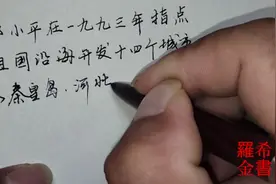 小平在一九九三年指点
祖國沿海开发十四个城市
秦皇岛.河北
羅希
金書